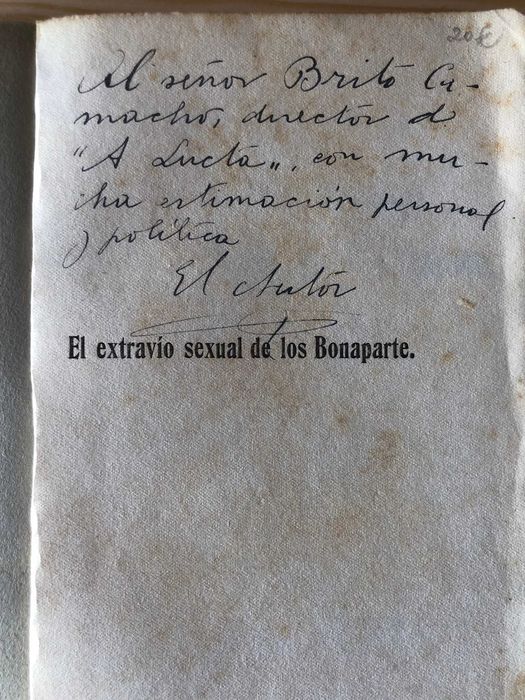 20€
Al señor Brito Ca-
macho, director d
"A Lucta„, con mu-
cha estimación personal
y política
El Autór
El extravío sexual de los Bonaparte.